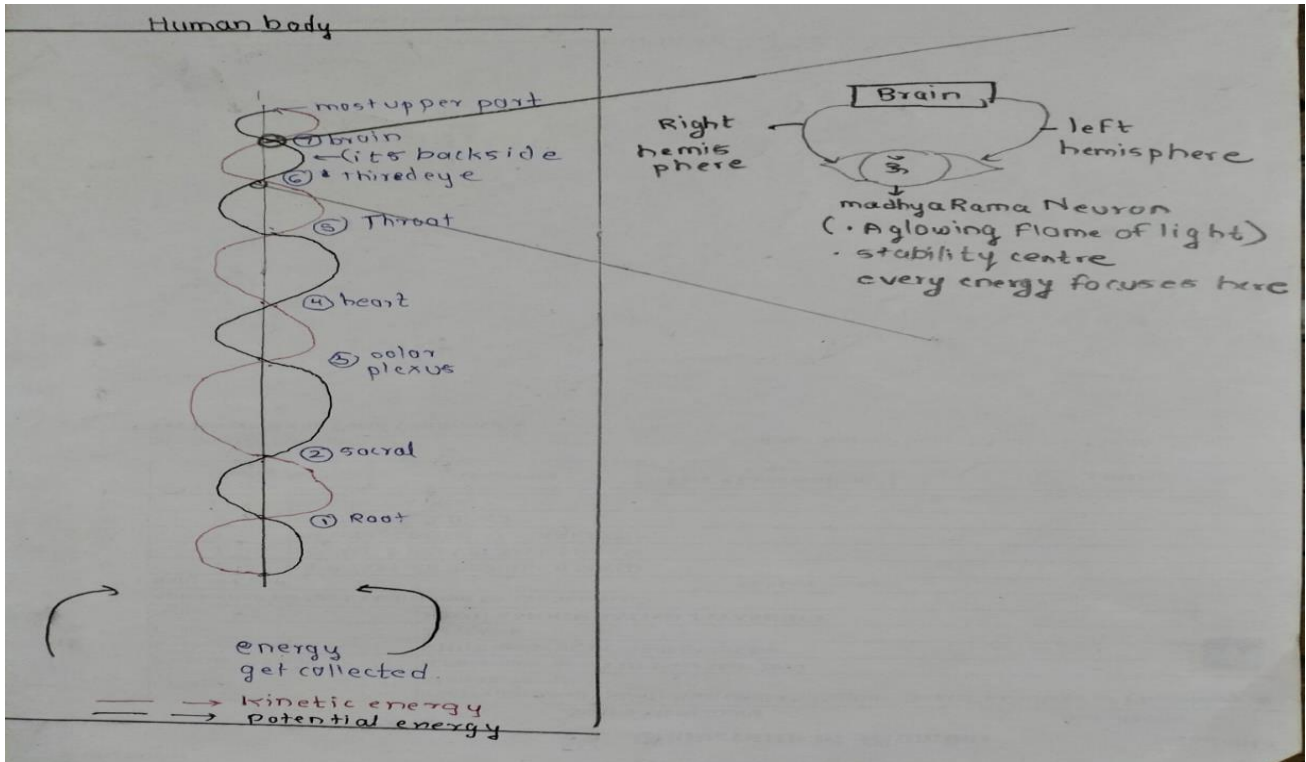 Human body
most upper part
⑦ brain
(its backside
⑥ thiredeye
⑤ Throat
④ heart
③ color
plexus
② sacral
① Root
energy
get collected.
kinetic energy
potential energy
Brain
Right
hemis
phere
left
hemisphere
madhyaRama Neuron
(. A glowing flame of light)
. stability centre
every energy focuses here